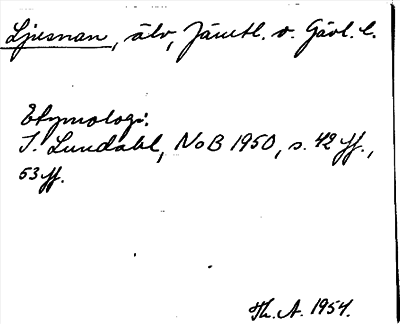 Ljusnan, älv, Jämtl. o. Gävl. l.
Etymologi:
I. Lundahl, NoB 1950, s. 42 ff.,
53 ff.
Th. A. 1954.